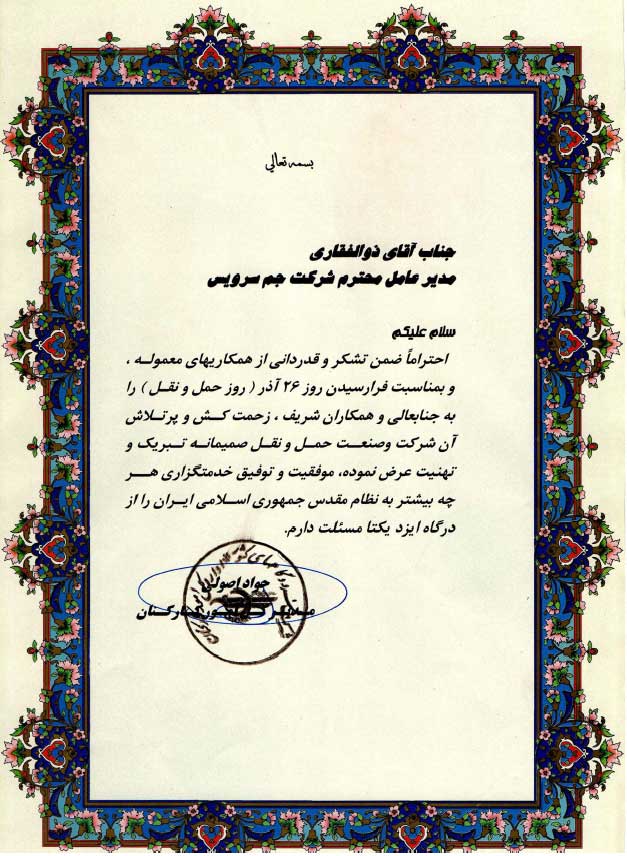 بسمه تعالی
جناب آقای ذوالفقاری
مدیر عامل محترم شرکت جم سرویس
سلام علیکم
احتراماً ضمن تشکر و قدردانی از همکاریهای معموله ،
و بمناسبت فرارسیدن روز ۲۶ آذر ( روز حمل و نقل ) را
به جنابعالی و همکاران شریف ، زحمت کش و پرتلاش
آن شرکت وصنعت حمل و نقل صمیمانه تبریک و
تهنیت عرض نموده، موفقیت و توفیق خدمتگزاری هر
چه بیشتر به نظام مقدس جمهوری اسلامی ایران را از
درگاه ایزد یکتا مسئلت دارم.
جواد اصولی
مدیر کل امور کارکنان